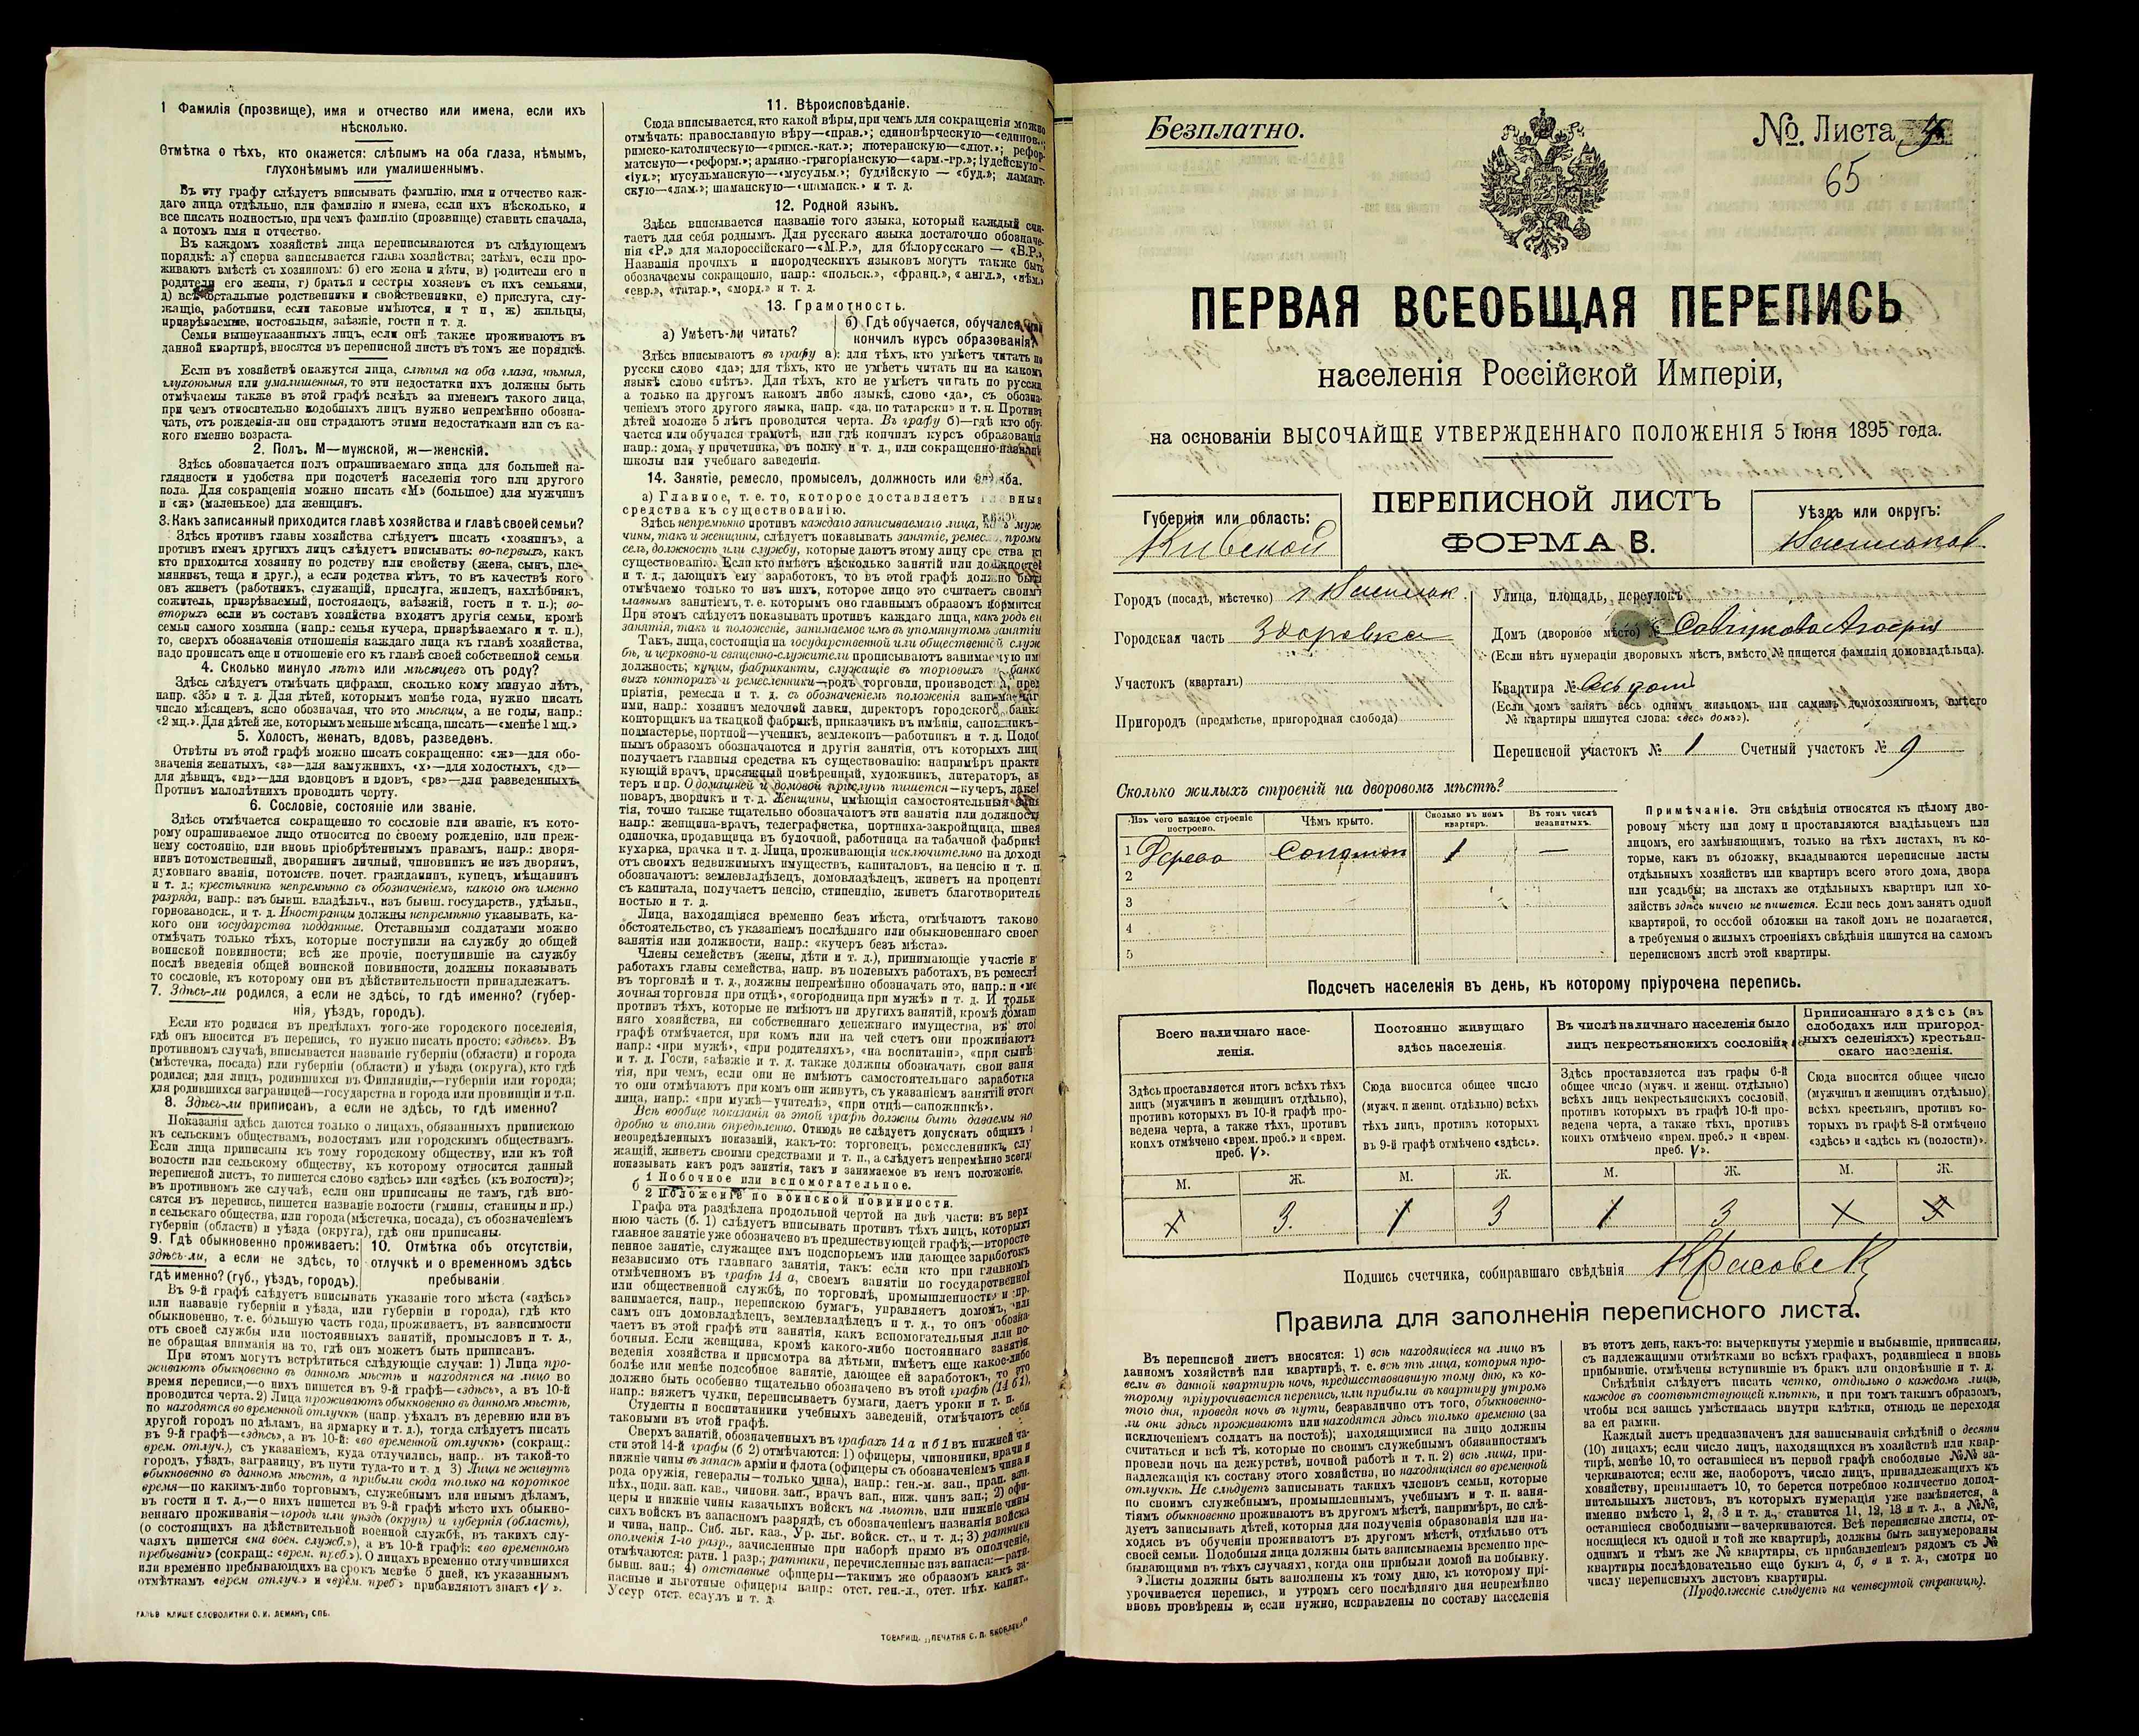 1 Фамилія (прозвище), имя и отчество или имена, если ихъ
нѣсколько.
Отмѣтка о тѣхъ, кто окажется: слѣпымъ на оба глаза, нѣмымъ,
глухонѣмымъ или умалишеннымъ.
Въ эту графу слѣдуетъ вписывать фамилію, имя и отчество каж-
даго лица отдѣльно, или фамилію и имена, если ихъ нѣсколько, и
все писать полностью, при чемъ фамилію (прозвище) ставить сначала,
а потомъ имя и отчество.
Въ каждомъ хозяйствѣ лица переписываются въ слѣдующемъ
порядкѣ: а) сперва записывается глава хозяйства; затѣмъ, если про-
живаютъ вмѣстѣ съ хозяиномъ: б) его жена и дѣти, в) родители его и
родители его жены, г) братья и сестры хозяевъ съ ихъ семьями,
д) всѣ остальные родственники и свойственники, е) прислуга, слу-
жащіе, работники, если таковые имѣются, и т п, ж) жильцы,
призрѣваемые, постояльцы, заѣзжіе, гости и т. д.
Семьи вышеуказанныхъ лицъ, если онѣ также проживаютъ въ
данной квартирѣ, вносятся въ переписной листъ въ томъ же порядкѣ.
Если въ хозяйствѣ окажутся лица, слѣпыя на оба глаза, нѣмыя,
глухонѣмыя или умалишенныя, то эти недостатки ихъ должны быть
отмѣчаемы также въ этой графѣ вслѣдъ за именемъ такого лица,
при чемъ относительно подобныхъ лицъ нужно непремѣнно обозна-
чать, отъ рожденія-ли они страдаютъ этими недостатками или съ ка-
кого именно возраста.
2. Полъ. М—мужской, ж—женскій.
Здѣсь обозначается полъ опрашиваемаго лица для большей на-
глядности и удобства при подсчетѣ населенія того или другого
пола. Для сокращенія можно писать «М» (большое) для мужчинъ
и «ж» (маленькое) для женщинъ.
3. Какъ записанный приходится главѣ хозяйства и главѣ своей семьи?
Здѣсь противъ главы хозяйства слѣдуетъ писать «хозяинъ», а
противъ именъ другихъ лицъ слѣдуетъ вписывать: во-первыхъ, какъ
кто приходится хозяину по родству или свойству (жена, сынъ, пле-
мянникъ, теща и друг.), а если родства нѣтъ, то въ качествѣ кого
онъ живетъ (работникъ, служащій, прислуга, жилецъ, нахлѣбникъ,
сожитель, призрѣваемый, постоялецъ, заѣзжій, гость и т. п.); во-
вторыхъ если въ составъ хозяйства входятъ другія семьи, кромѣ
семьи самого хозяина (напр.: семья кучера, призрѣваемаго и т. п.),
то, сверхъ обозначенія отношенія каждаго лица къ главѣ хозяйства,
надо прописать еще и отношеніе его къ главѣ своей собственной семьи
4. Сколько минуло лѣтъ или мѣсяцевъ отъ роду?
Здѣсь слѣдуетъ отмѣчать цифрами, сколько кому минуло лѣтъ,
напр. «35» и т. д. Для дѣтей, которымъ менѣе года, нужно писать
число мѣсяцевъ, ясно обозначая, что это мѣсяцы, а не годы, напр.:
«2 мц.». Для дѣтей же, которымъ меньше мѣсяца, писать—«менѣе 1 мц.»
5. Холостъ, женатъ, вдовъ, разведенъ.
Отвѣты въ этой графѣ можно писать сокращенно: «ж»—для обо-
значенія женатыхъ, «з»—для замужнихъ, «х»—для холостыхъ, «д»—
для дѣвицъ, «вд»—для вдовцовъ и вдовъ, «рз»—для разведенныхъ.
Противъ малолѣтнихъ проводить черту.
6. Сословіе, состояніе или званіе.
Здѣсь отмѣчается сокращенно то сословіе или званіе, къ кото-
рому опрашиваемое лицо относится по своему рожденію, или преж-
нему состоянію, или вновь пріобрѣтеннымъ правамъ, напр.: дворя-
нинъ потомственный, дворянинъ личный, чиновникъ не изъ дворянъ,
духовнаго званія, потомств. почет. гражданинъ, купецъ, мѣщанинъ
и т. д.; крестьянинъ непремѣнно съ обозначеніемъ, какого онъ именно
разряда, напр.: изъ бывш. владѣльч., изъ бывш. государств., удѣльн.,
горнозаводск., и т. д. Иностранцы должны непремѣнно указывать, ка-
кого они государства подданные. Отставными солдатами можно
отмѣчать только тѣхъ, которые поступили на службу до общей
воинской повинности; всѣ же прочіе, поступившіе на службу
послѣ введенія общей воинской повинности, должны показывать
то сословіе, къ которому они въ дѣйствительности принадлежатъ.
7. Здѣсь-ли родился, а если не здѣсь, то гдѣ именно? (губер-
нія, уѣздъ, городъ).
Если кто родился въ предѣлахъ того-же городского поселенія,
гдѣ онъ вносится въ перепись, то нужно писать просто: «здѣсь». Въ
противномъ случаѣ, вписывается названіе губерніи (области) и города
(мѣстечка, посада) или губерніи (области) и уѣзда (округа), кто гдѣ
родился; для лицъ, родившихся въ Финляндіи,—губерніи или города;
для родившихся заграницей—государства и города или провинціи и т.п.
8. Здѣсь-ли приписанъ, а если не здѣсь, то гдѣ именно?
Показанія здѣсь даются только о лицахъ, обязанныхъ припискою
къ сельскимъ обществамъ, волостямъ или городскимъ обществамъ.
Если лица приписаны къ тому городскому обществу, или къ той
волости или сельскому обществу, къ которому относится данный
переписной листъ, то пишется слово «здѣсь» или «здѣсь (къ волости)»;
въ противномъ же случаѣ, если они приписаны не тамъ, гдѣ вно-
сятся въ перепись, пишется названіе волости (гмины, станицы и пр.)
и сельскаго общества, или города (мѣстечка, посада), съ обозначеніемъ
губерніи (области) и уѣзда (округа), гдѣ они приписаны.
9. Гдѣ обыкновенно проживаетъ:
здѣсь-ли, а если не здѣсь, то
гдѣ именно? (губ., уѣздъ, городъ).
10. Отмѣтка объ отсутствіи,
отлучкѣ и о временномъ здѣсь
пребываніи
Въ 9-й графѣ слѣдуетъ вписывать указаніе того мѣста («здѣсь»
или названіе губерніи и уѣзда, или губерніи и города), гдѣ кто
обыкновенно, т. е. бо́льшую часть года, проживаетъ, въ зависимости
отъ своей службы или постоянныхъ занятій, промысловъ и т. д.,
не обращая вниманія на то, гдѣ онъ можетъ быть приписанъ.
При этомъ могутъ встрѣтиться слѣдующіе случаи: 1) Лица про-
живаютъ обыкновенно въ данномъ мѣстѣ и находятся на лицо во
время переписи,—о нихъ пишется въ 9-й графѣ—«здѣсь», а въ 10-й
проводится черта. 2) Лица проживаютъ обыкновенно въ данномъ мѣстѣ,
но находятся во временной отлучкѣ (напр. уѣхалъ въ деревню или въ
другой городъ по дѣламъ, на ярмарку и т. д.), тогда слѣдуетъ писать
въ 9-й графѣ—«здѣсь», а въ 10-й: «во временной отлучкѣ» (сокращ.:
врем. отлуч.), съ указаніемъ, куда отлучились, напр.. въ такой-то
городъ, уѣздъ, заграницу, въ пути туда-то и т. д 3) Лица не живутъ
обыкновенно въ данномъ мѣстѣ, а прибыли сюда только на короткое
время—по какимъ-либо торговымъ, служебнымъ или инымъ дѣламъ,
въ гости и т. д.,—о нихъ пишется въ 9-й графѣ мѣсто ихъ обыкно-
веннаго проживанія—городъ или уѣздъ (округъ) и губернія (область),
(о состоящихъ на дѣйствительной военной службѣ, въ такихъ слу-
чаяхъ пишется «на воен. служб.»), а въ 10-й графѣ: «во временномъ
пребываніи» (сокращ.: «врем. преб.»). О лицахъ временно отлучившихся
или временно пребывающихъ на срокъ менѣе 5 дней, къ указаннымъ
отмѣткамъ «врем отлуч.» и «врем. преб» прибавляютъ знакъ «V».
ГАЛЬВ КЛИШЕ СЛОВОЛИТНИ О. И. ЛЕМАНЪ, СПБ.
11. Вѣроисповѣданіе.
Сюда вписывается, кто какой вѣры, при чемъ для сокращенія можно
отмѣчать: православную вѣру—«прав.»; единовѣрческую—«единов.»;
римско-католическую—«римск.-кат.»; лютеранскую—«лют.»; рефор-
матскую—«реформ.»; армяно-григоріанскую—«арм.-гр.»; іудейскую—
«іуд.»; мусульманскую—«мусульм.»; буддійскую — «буд.»; ламаит-
скую—«лам.»; шаманскую—«шаманск.» и т. д.
12. Родной языкъ.
Здѣсь вписывается названіе того языка, который каждый счи-
таетъ для себя роднымъ. Для русскаго языка достаточно обозначе-
нія «Р.» для малороссійскаго—«М.Р.», для бѣлорусскаго — «Б.Р.»,
Названія прочихъ и инородческихъ языковъ могутъ также быть
обозначаемы сокращенно, напр.: «польск.», «франц.», «англ.», «нѣм.»
«евр.», «татар.», «морд.» и т. д.
13. Грамотность.
а) Умѣетъ-ли читать?
б) Гдѣ обучается, обучался или
кончилъ курсъ образованія?
Здѣсь вписываютъ въ графу а): для тѣхъ, кто умѣетъ читать по
русски слово «да»; для тѣхъ, кто не умѣетъ читать ни на какомъ
языкѣ слово «нѣтъ». Для тѣхъ, кто не умѣетъ читать по русски
а только на другомъ какомъ либо языкѣ, слово «да», съ обозна-
ченіемъ этого другого языка, напр. «да, по татарски» и т. п. Противъ
дѣтей моложе 5 лѣтъ проводится черта. Въ графу б)—гдѣ кто обу-
чается или обучался грамотѣ, или гдѣ кончилъ курсъ образованія
напр.: дома, у причетника, въ полку и т. д., или сокращенно названіе
школы или учебнаго заведенія.
14. Занятіе, ремесло, промыселъ, должность или служба.
а) Главное, т. е. то, которое доставляетъ главныя
средства къ существованію.
Здѣсь непремѣнно противъ каждаго записываемаго лица, какъ муж-
чины, такъ и женщины, слѣдуетъ показывать занятіе, ремесло, промы-
селъ, должность или службу, которые даютъ этому лицу средства къ
существованію. Если кто имѣетъ нѣсколько занятій или должностей
и т. д., дающихъ ему заработокъ, то въ этой графѣ должно быть
отмѣчаемо только то изъ нихъ, которое лицо это считаетъ своимъ
главнымъ занятіемъ, т. е. которымъ оно главнымъ образомъ кормится
При этомъ слѣдуетъ показывать противъ каждаго лица, какъ родъ его
занятія, такъ и положеніе, занимаемое имъ въ упомянутомъ занятіи
Такъ, лица, состоящія на государственной или общественной служ-
бѣ, и церковно- и священно-служители прописываютъ занимаемую ими
должность; купцы, фабриканты, служащіе въ торговыхъ и банко-
выхъ конторахъ и ремесленники—родъ торговли, производства, пред-
пріятія, ремесла и т. д. съ обозначеніемъ положенія занимаемаго
ими, напр.: хозяинъ мелочной лавки, директоръ городского банка
конторщикъ на ткацкой фабрикѣ, приказчикъ въ имѣніи, сапожникъ-
подмастерье, портной—ученикъ, землекопъ—работникъ и т. д. Подоб-
нымъ образомъ обозначаются и другія занятія, отъ которыхъ лицо
получаетъ главныя средства къ существованію: напримѣръ практи-
кующій врачъ, присяжный повѣренный, художникъ, литераторъ, ак-
теръ и пр. О домашней и домовой прислугѣ пишется—кучеръ, лакей
поваръ, дворникъ и т. д. Женщины, имѣющія самостоятельныя заня-
тія, точно также тщательно обозначаютъ эти занятія или должность
напр.: женщина-врачъ, телеграфистка, портниха-закройщица, швея
одиночка, продавщица въ булочной, работница на табачной фабрикѣ
кухарка, прачка и т. д. Лица, проживающія исключительно на доходы
отъ своихъ недвижимыхъ имуществъ, капиталовъ, на пенсію и т. п.
обозначаютъ: землевладѣлецъ, домовладѣлецъ, живетъ на проценты
съ капитала, получаетъ пенсію, стипендію, живетъ благотворитель-
ностью и т. д.
Лица, находящіяся временно безъ мѣста, отмѣчаютъ таковое
обстоятельство, съ указаніемъ послѣдняго или обыкновеннаго своего
занятія или должности, напр.: «кучеръ безъ мѣста».
Члены семействъ (жены, дѣти и т. д.), принимающіе участіе въ
работахъ главы семейства, напр. въ полевыхъ работахъ, въ ремеслѣ
въ торговлѣ и т. д., должны непремѣнно обозначать это, напр.: и «ме-
лочная торговля при отцѣ», «огородница при мужѣ» и т. д. И только
противъ тѣхъ, которые не имѣютъ ни другихъ занятій, кромѣ домаш-
няго хозяйства, ни собственнаго денежнаго имущества, въ этой
графѣ отмѣчается, при комъ или на чей счетъ они проживаютъ
напр.: «при мужѣ», «при родителяхъ», «на воспитаніи», «при сынѣ»
и т. д. Гости, заѣзжіе и т. д. также должны обозначать свои заня-
тія, при чемъ, если они не имѣютъ самостоятельнаго заработка
то они отмѣчаютъ при комъ они живутъ, съ указаніемъ занятій этого
лица, напр.: «при мужѣ—учителѣ», «при отцѣ—сапожникѣ».
Всѣ вообще показанія въ этой графѣ должны быть даваемы по-
дробно и вполнѣ опредѣленно. Отнюдь не слѣдуетъ допускать общихъ и
неопредѣленныхъ показаній, какъ-то: торговецъ, ремесленникъ, слу-
жащій, живетъ своими средствами и т. п., а слѣдуетъ непремѣнно всегда
показывать какъ родъ занятія, такъ и занимаемое въ немъ положеніе.
б 1 Побочное или вспомогательное.
2 Положеніе по воинской повинности.
Графа эта раздѣлена продольной чертой на двѣ части: въ верх-
нюю часть (б. 1) слѣдуетъ вписывать противъ тѣхъ лицъ, которыхъ
главное занятіе уже обозначено въ предшествующей графѣ,—второсте-
пенное занятіе, служащее имъ подспорьемъ или дающее заработокъ
независимо отъ главнаго занятія, такъ: если кто при главномъ
отмѣченномъ въ графѣ 14 а, своемъ занятіи по государственной
или общественной службѣ, по торговлѣ, промышленности и пр.
занимается, напр., перепискою бумагъ, управляетъ домомъ, или
самъ онъ домовладѣлецъ, землевладѣлецъ и т. д., то онъ обозна-
чаетъ въ этой графѣ эти занятія, какъ вспомогательныя или по-
бочныя. Если женщина, кромѣ какого-либо постояннаго занятія,
веденія хозяйства и присмотра за дѣтьми, имѣетъ еще какое-либо
болѣе или менѣе подсобное занятіе, дающее ей заработокъ, то это
должно быть особенно тщательно обозначено въ этой графѣ (14 б 1),
напр.: вяжетъ чулки, переписываетъ бумаги, даетъ уроки и т. п.
Студенты и воспитанники учебныхъ заведеній, отмѣчаютъ себя
таковыми въ этой графѣ.
Сверхъ занятій, обозначенныхъ въ графахъ 14 а и б 1 въ нижней ча-
сти этой 14-й графы (б 2) отмѣчаются: 1) офицеры, чиновники, врачи и
нижніе чины въ запасѣ арміи и флота (офицеры съ обозначеніемъ чина и
рода оружія, генералы—только чина), напр.: ген.-м. зап., прап. зап.
пѣх., подп. зап. кав., чиновн. зап., врачъ зап., ниж. чинъ зап.; 2) офи-
церы и нижніе чины казачьихъ войскъ на льготѣ, или нижніе чины
сихъ войскъ въ запасномъ разрядѣ, съ обозначеніемъ названія войска
и чина, напр.. Сиб. льг. каз., Ур. льг. войск. ст., и т. д.; 3) ратники
ополченія 1-го разр., зачисленные при наборѣ прямо въ ополченіе,
отмѣчаются: ратн. 1 разр.; ратники, перечисленные изъ запаса:—ратн.
бывш. зап.; 4) отставные офицеры—такимъ же образомъ какъ за-
пасные и льготные офицеры напр.: отст. ген.-л., отст. пѣх. капит.,
Уссур отст. есаулъ и т. д.
ТОВАРИЩ. „ПЕЧАТНЯ С. П. ЯКОВЛЕВА"
Безплатно.
№ Листа
65
ПЕРВАЯ ВСЕОБЩАЯ ПЕРЕПИСЬ
населенія Россійской Имперіи,
на основаніи ВЫСОЧАЙШЕ УТВЕРЖДЕННАГО ПОЛОЖЕНІЯ 5 Іюня 1895 года.
Губернія или область:
Кіевской
ПЕРЕПИСНОЙ ЛИСТЪ
ФОРМА В.
Уѣздъ или округъ:
Васильков
Городъ (посадъ, мѣстечко) г. Василько
Городская часть Здоровка
Участокъ (кварталъ)
Пригородъ (предмѣстье, пригородная слобода)
Улица, площадь, переулокъ
Домъ (дворовое мѣсто) №
(Если нѣтъ нумераціи дворовыхъ мѣстъ, вмѣсто № пишется фамилія домовладѣльца).
Квартира № Весь домъ
(Если домъ занятъ весь однимъ жильцомъ, или самимъ домохозяиномъ, вмѣсто
№ квартиры пишутся слова: «весь домъ»).
Переписной участокъ № 1 Счетный участокъ № 9
Сколько жилыхъ строеній на дворовомъ мѣстѣ?
Изъ чего каждое строеніе построено.
Чѣмъ крыто.
Сколько въ немъ квартиръ.
Въ томъ числѣ незанятыхъ.
1 Дерево Соломою 1 —
2
3
4
5
Примѣчаніе. Эти свѣдѣнія относятся къ цѣлому дво-
ровому мѣсту или дому и проставляются владѣльцемъ или
лицомъ, его замѣняющимъ, только на тѣхъ листахъ, въ ко-
торые, какъ въ обложку, вкладываются переписные листы
отдѣльныхъ хозяйствъ или квартиръ всего этого дома, двора
или усадьбы; на листахъ же отдѣльныхъ квартиръ или хо-
зяйствъ здѣсь ничего не пишется. Если весь домъ занятъ одной
квартирой, то особой обложки на такой домъ не полагается,
а требуемыя о жилыхъ строеніяхъ свѣдѣнія пишутся на самомъ
переписномъ листѣ этой квартиры.
Подсчетъ населенія въ день, къ которому пріурочена перепись.
Всего наличнаго насе-
ленія.
Постоянно живущаго
здѣсь населенія.
Въ числѣ наличнаго населенія было
лицъ некрестьянскихъ сословій.
Приписаннаго здѣсь (въ
слободахъ или пригород-
ныхъ селеніяхъ) крестьян-
скаго населенія.
Здѣсь проставляется итогъ всѣхъ тѣхъ
лицъ (мужчинъ и женщинъ отдѣльно),
противъ которыхъ въ 10-й графѣ про-
ведена черта, а также тѣхъ, противъ
коихъ отмѣчено «врем. преб.» и «врем.
преб. V».
Сюда вносится общее число
(мужч. и женщ. отдѣльно) всѣхъ
тѣхъ лицъ, противъ которыхъ
въ 9-й графѣ отмѣчено «здѣсь».
Здѣсь проставляется изъ графы 6-й
общее число (мужч. и женщ. отдѣльно)
всѣхъ лицъ некрестьянскихъ сословій,
противъ которыхъ въ графѣ 10-й про-
ведена черта, а также тѣхъ, противъ
коихъ отмѣчено «врем. преб.» и «врем.
преб. V».
Сюда вносится общее число
(мужчинъ и женщинъ отдѣльно)
всѣхъ крестьянъ, противъ ко-
торыхъ въ графѣ 8-й отмѣчено
«здѣсь» и «здѣсь къ (волости)».
М. Ж. М. Ж. М. Ж. М. Ж.
3. 1 3 1 3
Подпись счетчика, собиравшаго свѣдѣнія
Правила для заполненія переписного листа.
Въ переписной листъ вносятся: 1) всѣ находящіеся на лицо въ
данномъ хозяйствѣ или квартирѣ, т. е. всѣ тѣ лица, которыя про-
вели въ данной квартирѣ ночь, предшествовавшую тому дню, къ ко-
торому пріурочивается перепись, или прибыли въ квартиру утромъ
того дня, проведя ночь въ пути, безразлично отъ того, обыкновенно-
ли они здѣсь проживаютъ или находятся здѣсь только временно (за
исключеніемъ солдатъ на постоѣ); находящимися на лицо должны
считаться и всѣ тѣ, которые по своимъ служебнымъ обязанностямъ
провели ночь на дежурствѣ, ночной работѣ и т. п. 2) всѣ лица, при-
надлежащія къ составу этого хозяйства, но находящіяся во временной
отлучкѣ. Не слѣдуетъ записывать такихъ членовъ семьи, которые
по своимъ служебнымъ, промышленнымъ, учебнымъ и т. п. заня-
тіямъ обыкновенно проживаютъ въ другомъ мѣстѣ, напримѣръ, не слѣ-
дуетъ записывать дѣтей, которыя для полученія образованія или на-
ходясь въ обученіи проживаютъ въ другомъ мѣстѣ, отдѣльно отъ
своей семьи. Подобныя лица должны быть записываемы временно пре-
бывающими въ тѣхъ случаяхъ, когда они прибыли домой на побывку.
Листы должны быть заполнены къ тому дню, къ которому прі-
урочивается перепись, и утромъ сего послѣдняго дня непремѣнно
вновь провѣрены и, если нужно, исправлены по составу населенія
въ этотъ день, какъ-то: вычеркнуты умершіе и выбывшіе, приписаны,
съ надлежащими отмѣтками во всѣхъ графахъ, родившіеся и вновь
прибывшіе, отмѣчены вступившіе въ бракъ или овдовѣвшіе и т. д.
Свѣдѣнія слѣдуетъ писать четко, отдѣльно о каждомъ лицѣ,
каждое въ соотвѣтствующей клѣткѣ, и при томъ такимъ образомъ,
чтобы вся запись умѣстилась внутри клѣтки, отнюдь не переходя
за ея рамки.
Каждый листъ предназначенъ для записыванія свѣдѣній о десяти
(10) лицахъ; если число лицъ, находящихся въ хозяйствѣ или квар-
тирѣ, менѣе 10, то оставшіеся въ первой графѣ свободные №№ за-
черкиваются; если же, наоборотъ, число лицъ, принадлежащихъ къ
хозяйству, превышаетъ 10, то берется потребное количество допол-
нительныхъ листовъ, въ которыхъ нумерація уже измѣняется, а
именно вмѣсто 1, 2, 3 и т. д., ставится 11, 12, 13 и т. д., а №№,
оставшіеся свободными—вычеркиваются. Всѣ переписные листы, от-
носящіеся къ одной и той же квартирѣ, должны быть занумерованы
однимъ и тѣмъ же № квартиры, съ прибавленіемъ рядомъ съ №
квартиры послѣдовательно еще буквъ а, б, в и т. д., смотря по
числу переписныхъ листовъ квартиры.
(Продолженіе слѣдуетъ на четвертой страницѣ).